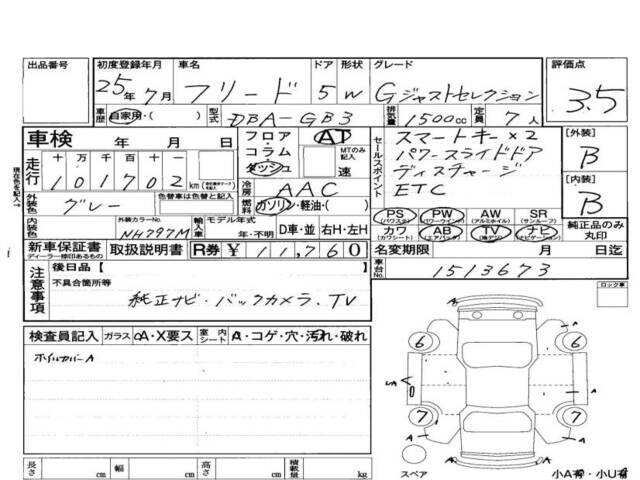 出品番号 初度登録年月 車名 ドア 形状 グレード 評価点
25年7月 フリード 5 W Gジャストセレクション 3.5
車歴 自家用・( ) 型式 DBA-GB3 排気量 1500cc 定員 7人
車検 年 月 日 フロア・コラム・ダッシュ AT MTのみ記入 速
セールスポイント スマートキー×2
パワースライドドア
ディスチャージ
ETC
[外装] B
[内装] B
走行 十 万 千 百 十 一
101702 km
外装色 グレー 色替車は色替と記入
冷房 AAC
燃料 ガソリン・軽油・( )
内装色 外装カラーNo. NH797M 輸入車 モデル年式 年・不明 D車・並 右H・左H
PS (パワステ) PW (パワーウィンド) AW (アルミホイル) SR (サンルーフ)
カワ (カワシート) AB (エアバック) TV (地デジ) ナビ (ナビゲーション)
純正品のみ丸印
現在色を記入→
新車保証書 ディーラー捺印あるもの 取扱説明書 R券 ¥11,760 名変期限 月 日迄
車台No. 1513673
注意事項 後日品【 】
不具合箇所等
純正ナビ・バックカメラ.TV
ロック車
検査員記入 ガラス A・X要ス 室内シート コゲ・穴・汚れ・破れ
ホイルカバーA
6 6
A
7 7
A
スペア
小A有・小U有
長さ cm 幅 cm 高さ cm 積載量 kg